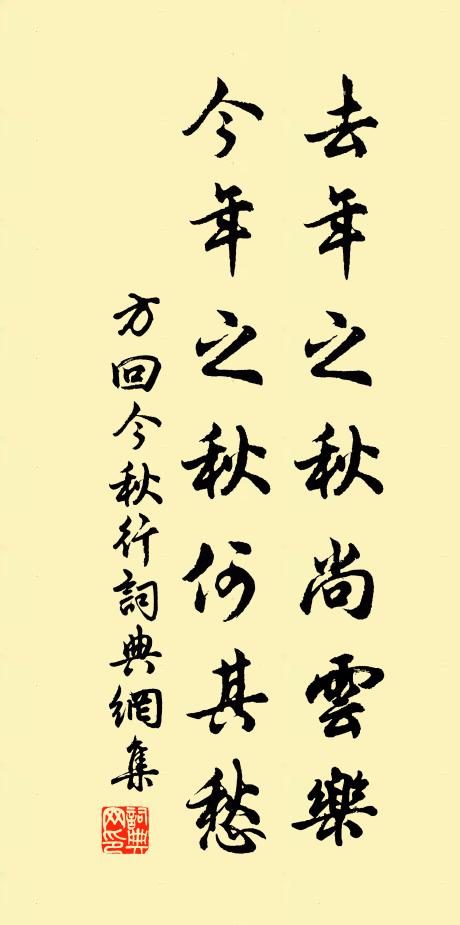 去年之秋尚雲樂
今年之秋何其愁
方回今秋行詞典網集
詞典网印